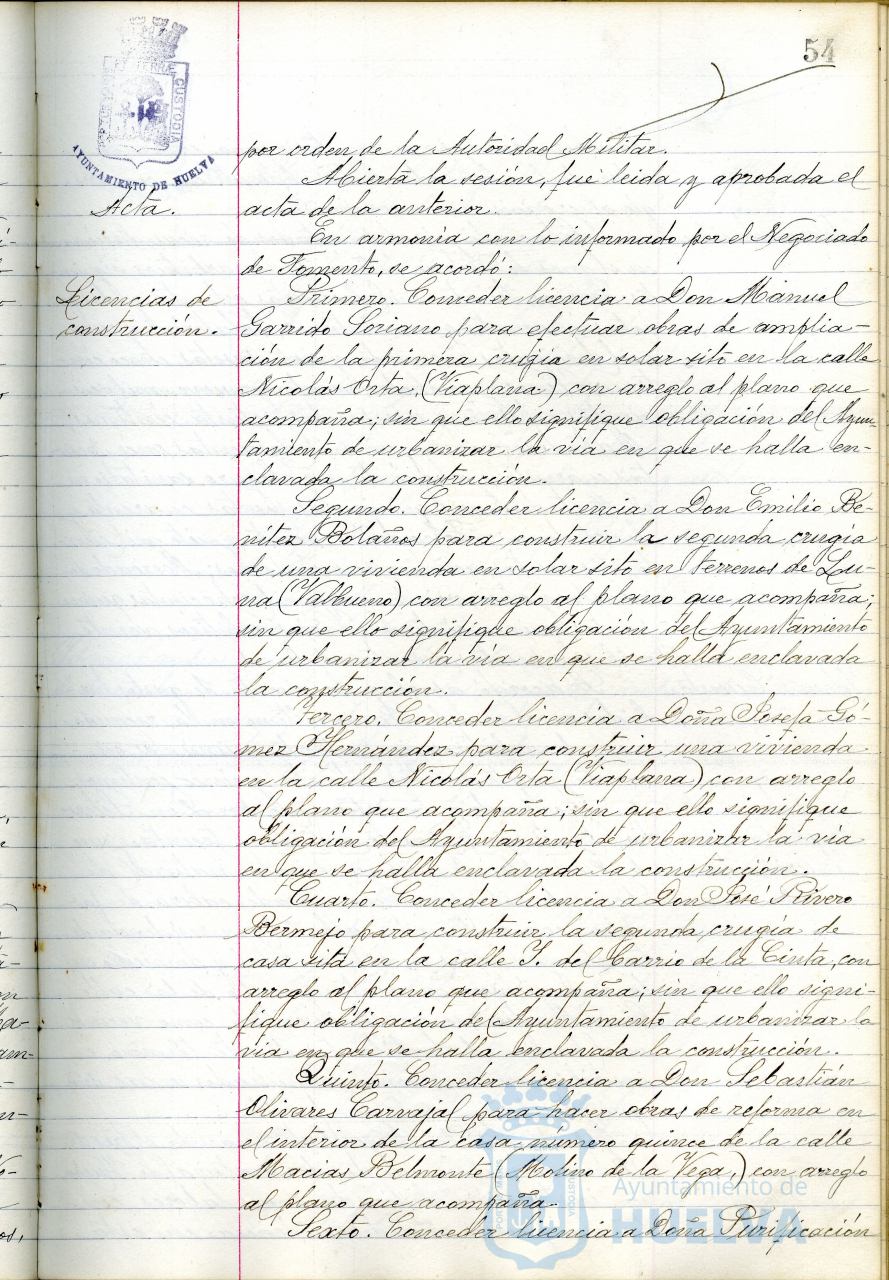 54
PORTUS MARIS ET TERRE CUSTODIA
AYUNTAMIENTO DE HUELVA
por orden de la Autoridad Militar.
Abierta la sesión, fué leida y aprobada el
Acta.
acta de la anterior.
En armonia con lo informado por el Negociado
de Fomento, se acordó:
Licencias de
construcción.
Primero. Conceder licencia a Don Manuel
Garrido Soriano para efectuar obras de amplia-
ción de la primera crugia en solar sito en la calle
Nicolás Orta, (Viaplana) con arreglo al plano que
acompaña; sin que ello signifique obligación del Ayun-
tamiento de urbanizar la via en que se halla en-
clavada la construcción.
Segundo. Conceder licencia a Don Emilio Be-
nitez Bolaños para construir la segunda crugia
de una vivienda en solar sito en terrenos de Lu-
na (Valbueno) con arreglo al plano que acompaña;
sin que ello signifique obligación del Ayuntamiento
de urbanizar la via en que se halla enclavada
la construcción.
Tercero. Conceder licencia a Doña Josefa Gó-
mez Hernández para construir una vivienda
en la calle Nicolás Orta (Viaplana) con arreglo
al plano que acompaña; sin que ello signifique
obligación del Ayuntamiento de urbanizar la via
en que se halla enclavada la construcción.
Cuarto. Conceder licencia a Don José Rivero
Bermejo para construir la segunda crugia de
casa sita en la calle Y. del Barrio de la Cinta, con
arreglo al plano que acompaña; sin que ello signi-
fique obligación del Ayuntamiento de urbanizar la
via en que se halla enclavada la construcción.
Quinto. Conceder licencia a Don Sebastián
Olivares Carvajal para hacer obras de reforma en
el interior de la casa número quince de la calle
Macias Belmonte (Molino de la Vega,) con arreglo
al plano que acompaña.
Sexto. Conceder licencia a Doña Purificación
Ayuntamiento de
HUELVA